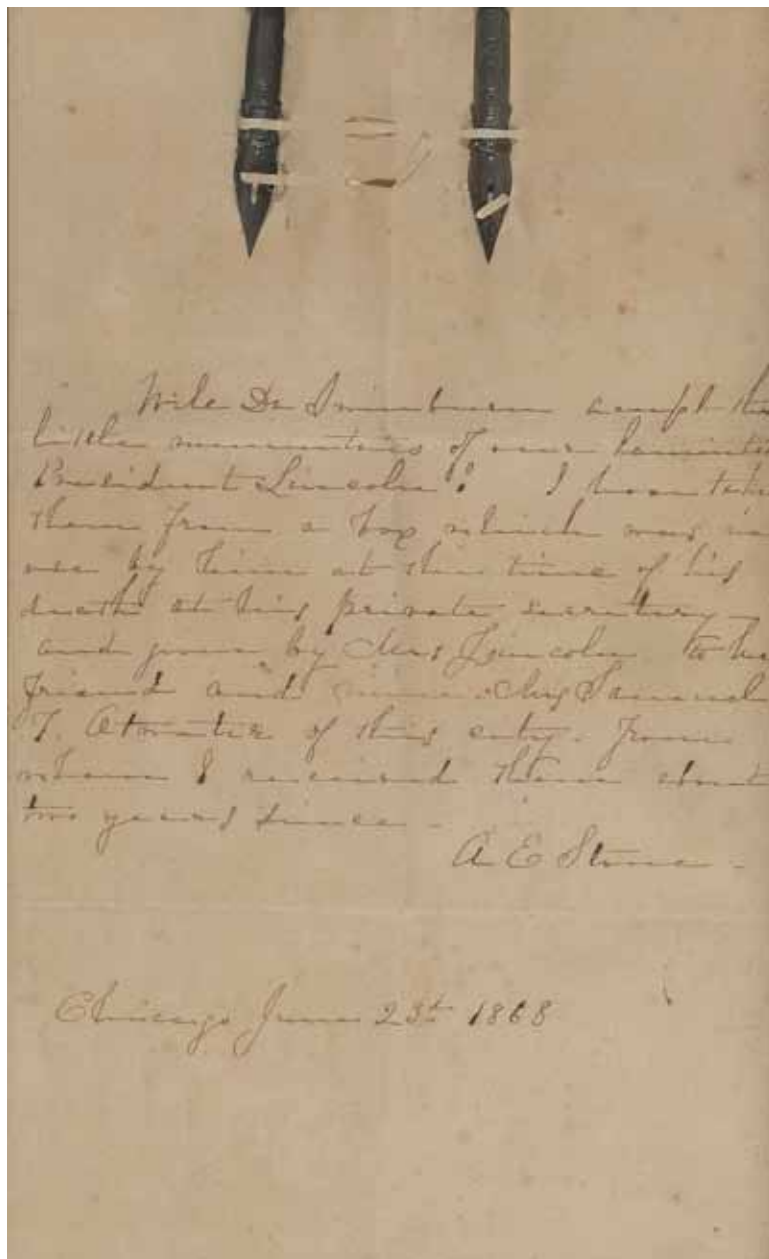 Will Dr Swinburn accept the
little mementoes of our lamented
President Lincoln! I have taken
them from a box which was in
use by him at the time of his
death at his private secretary
and given by Mrs Lincoln to her
friend and mine Mrs Samuel
T. Atwater of this city. From
whom I received them about
two years since.
A E Stone
Chicago June 23d 1868